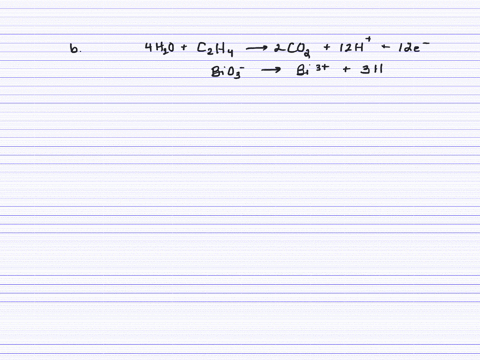 b. 4H₂O + C₂H₄ → 2CO₂ + 12H⁺ + 12e⁻
BiO₃⁻ → Bi³⁺ + 3H